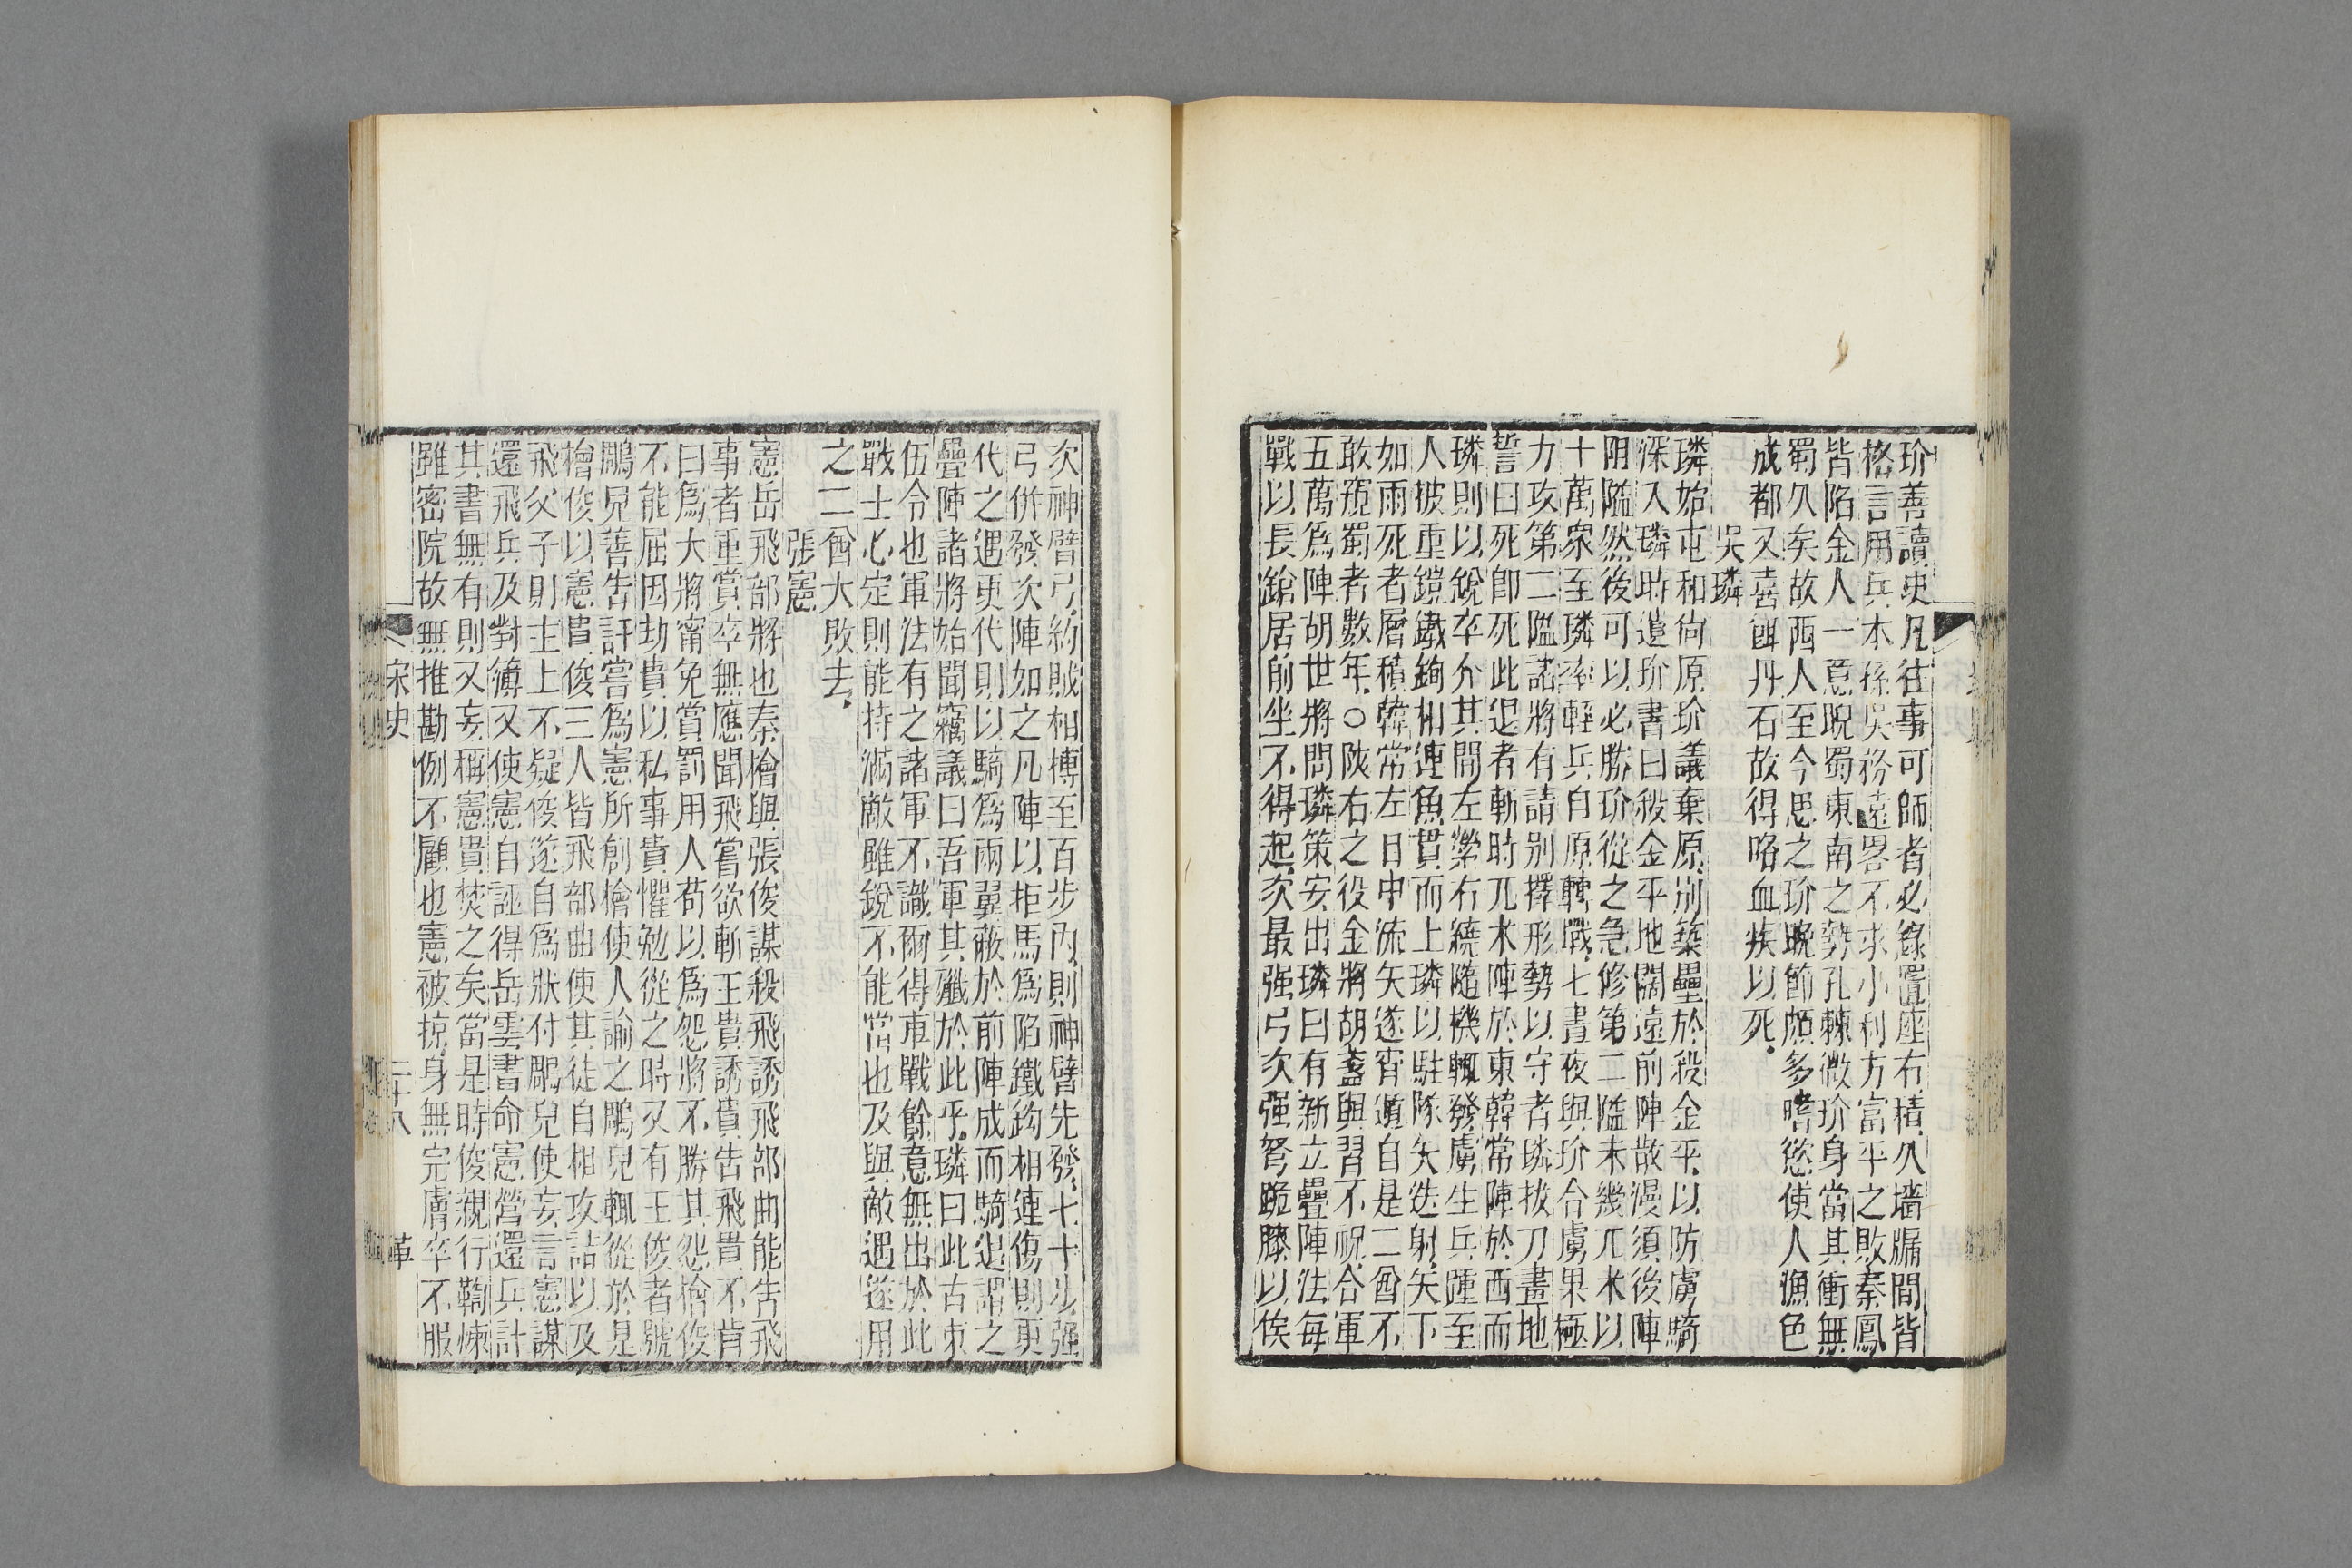 玠善讀史凡往事可師者必錄置座右積久墻牖間皆
格言用兵本孫吳務遠畧不求小利方富平之敗秦鳳
皆陷金人一意睨蜀東南之勢孔棘微玠身當其衝無
蜀久矣故西人至今思之玠晩節頗多嗜慾使人漁色
成都又喜餌丹石故得咯血疾以死
吳璘
璘始屯和尙原玠議棄原別築壘於殺金平以防虜騎
深入璘時遺玠書曰殺金平地闊遠前陣散漫須後陣
阻隘然後可以必勝玠從之急修第二隘未幾兀术以
十萬衆至璘率輕兵自原轉戰七晝夜與玠合虜果極
力攻第二隘諸將有請別擇形勢以守者璘拔刀畫地
誓曰死卽死此退者斬時兀术陣於東韓常陣於西而
璘則以銳卒介其間左縈右繞隨機輒發虜生兵踵至
人披重鎧鐵鉤相連魚貫而上璘以駐隊矢迭射矢下
如雨死者層積韓常左目中流矢遂宵遁自是二酋不
敢窺蜀者數年○陜右之役金將胡盞與習不祝合軍
五萬爲陣胡世將問璘策安出璘曰有新立疊陣法每
戰以長鎗居前坐不得起次最强弓次强弩跪膝以俟
次神臂弓約賊相搏至百步內則神臂先發七十步强
弓併發次陣如之凡陣以拒馬爲陷鐵鈎相連傷則更
代之遇更代則以騎爲兩翼蔽於前陣成而騎退謂之
疊陣諸將始聞竊議曰吾軍其殲於此乎璘曰此古束
伍令也軍法有之諸軍不識爾得車戰餘意無出於此
戰士心定則能持滿敵雖銳不能當也及與敵遇遂用
之二酋大敗去
張憲
憲岳飛部將也秦檜與張俊謀殺飛誘飛部曲能告飛
事者重賞卒無應聞飛嘗欲斬王貴誘貴告飛貴不肯
曰爲大將甯免賞罰用人苟以爲怨將不勝其怨檜俊
不能屈因劫貴以私事貴懼勉從之時又有王俊者號
鵰兒善告訐嘗爲憲所創檜使人諭之鵰兒輒從於是
檜俊以憲貴俊三人皆飛部曲使其徒自相攻詰以及
飛父子則主上不疑俊遂自爲狀付鵰兒使妄言憲謀
還飛兵及對簿又使憲自誣得岳雲書命憲營還兵計
其書無有則又妄稱憲貴焚之矣當是時俊親行鞫煉
雖密院故無推勘例不顧也憲被掠身無完膚卒不服
宋史
二十八
革